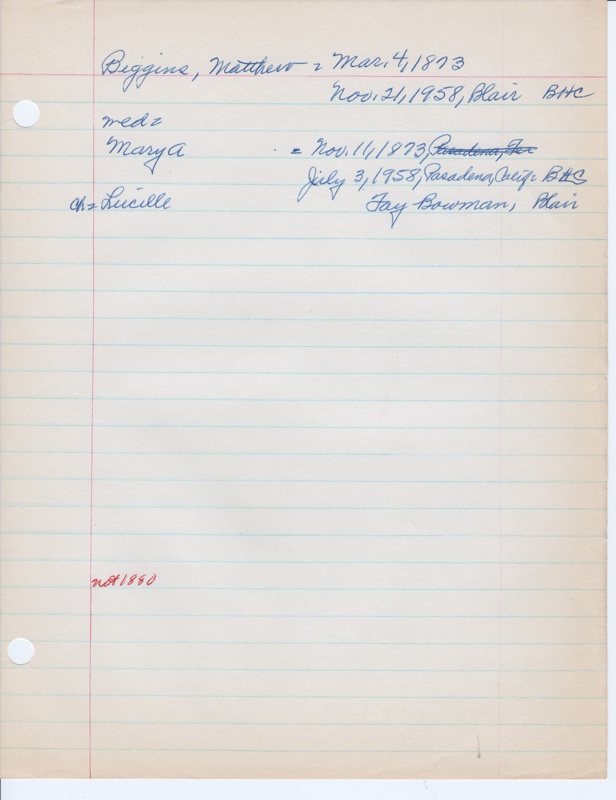 Biggins, Matthew = Mar. 4, 1873
Nov. 21, 1958, Blair BHC
med=
Mary A = Nov. 11, 1873, Pasadena,
July 3, 1958, Pasadena, Calif= BHC
ch= Lucille Fay Bowman, Blair
not 1880